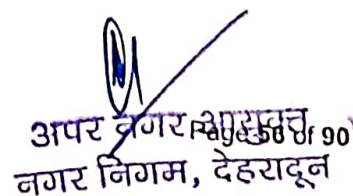 अपर नगर आयुक्त
Page 56 of 90
नगर निगम, देहरादून